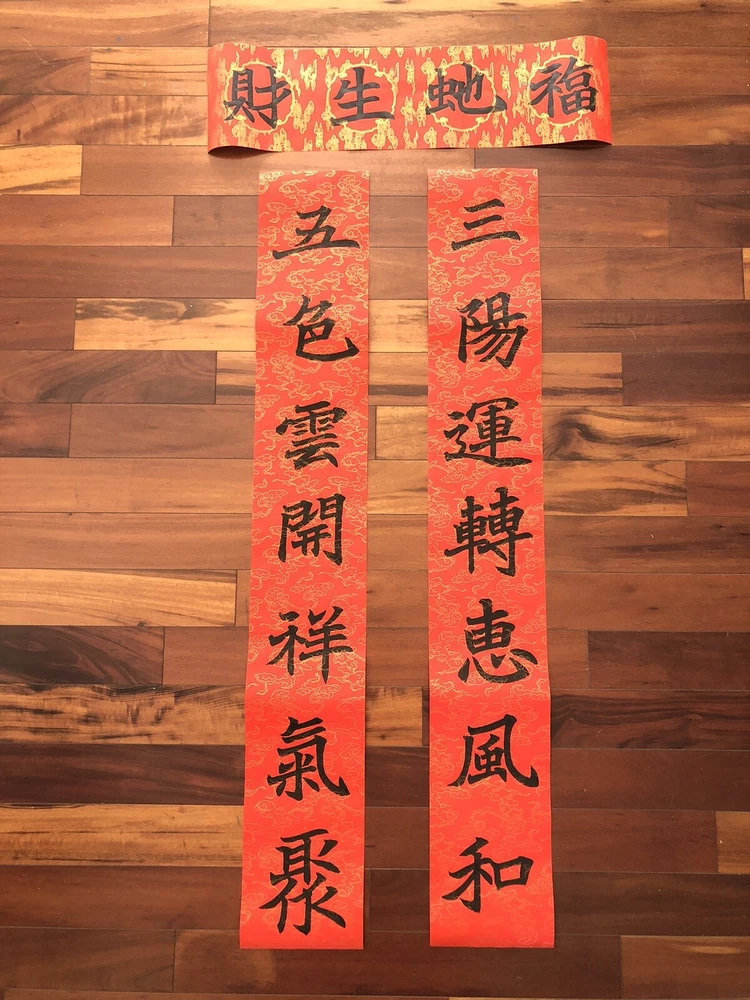 福虵生財
三陽運轉恵風和
五色雲開祥氣聚